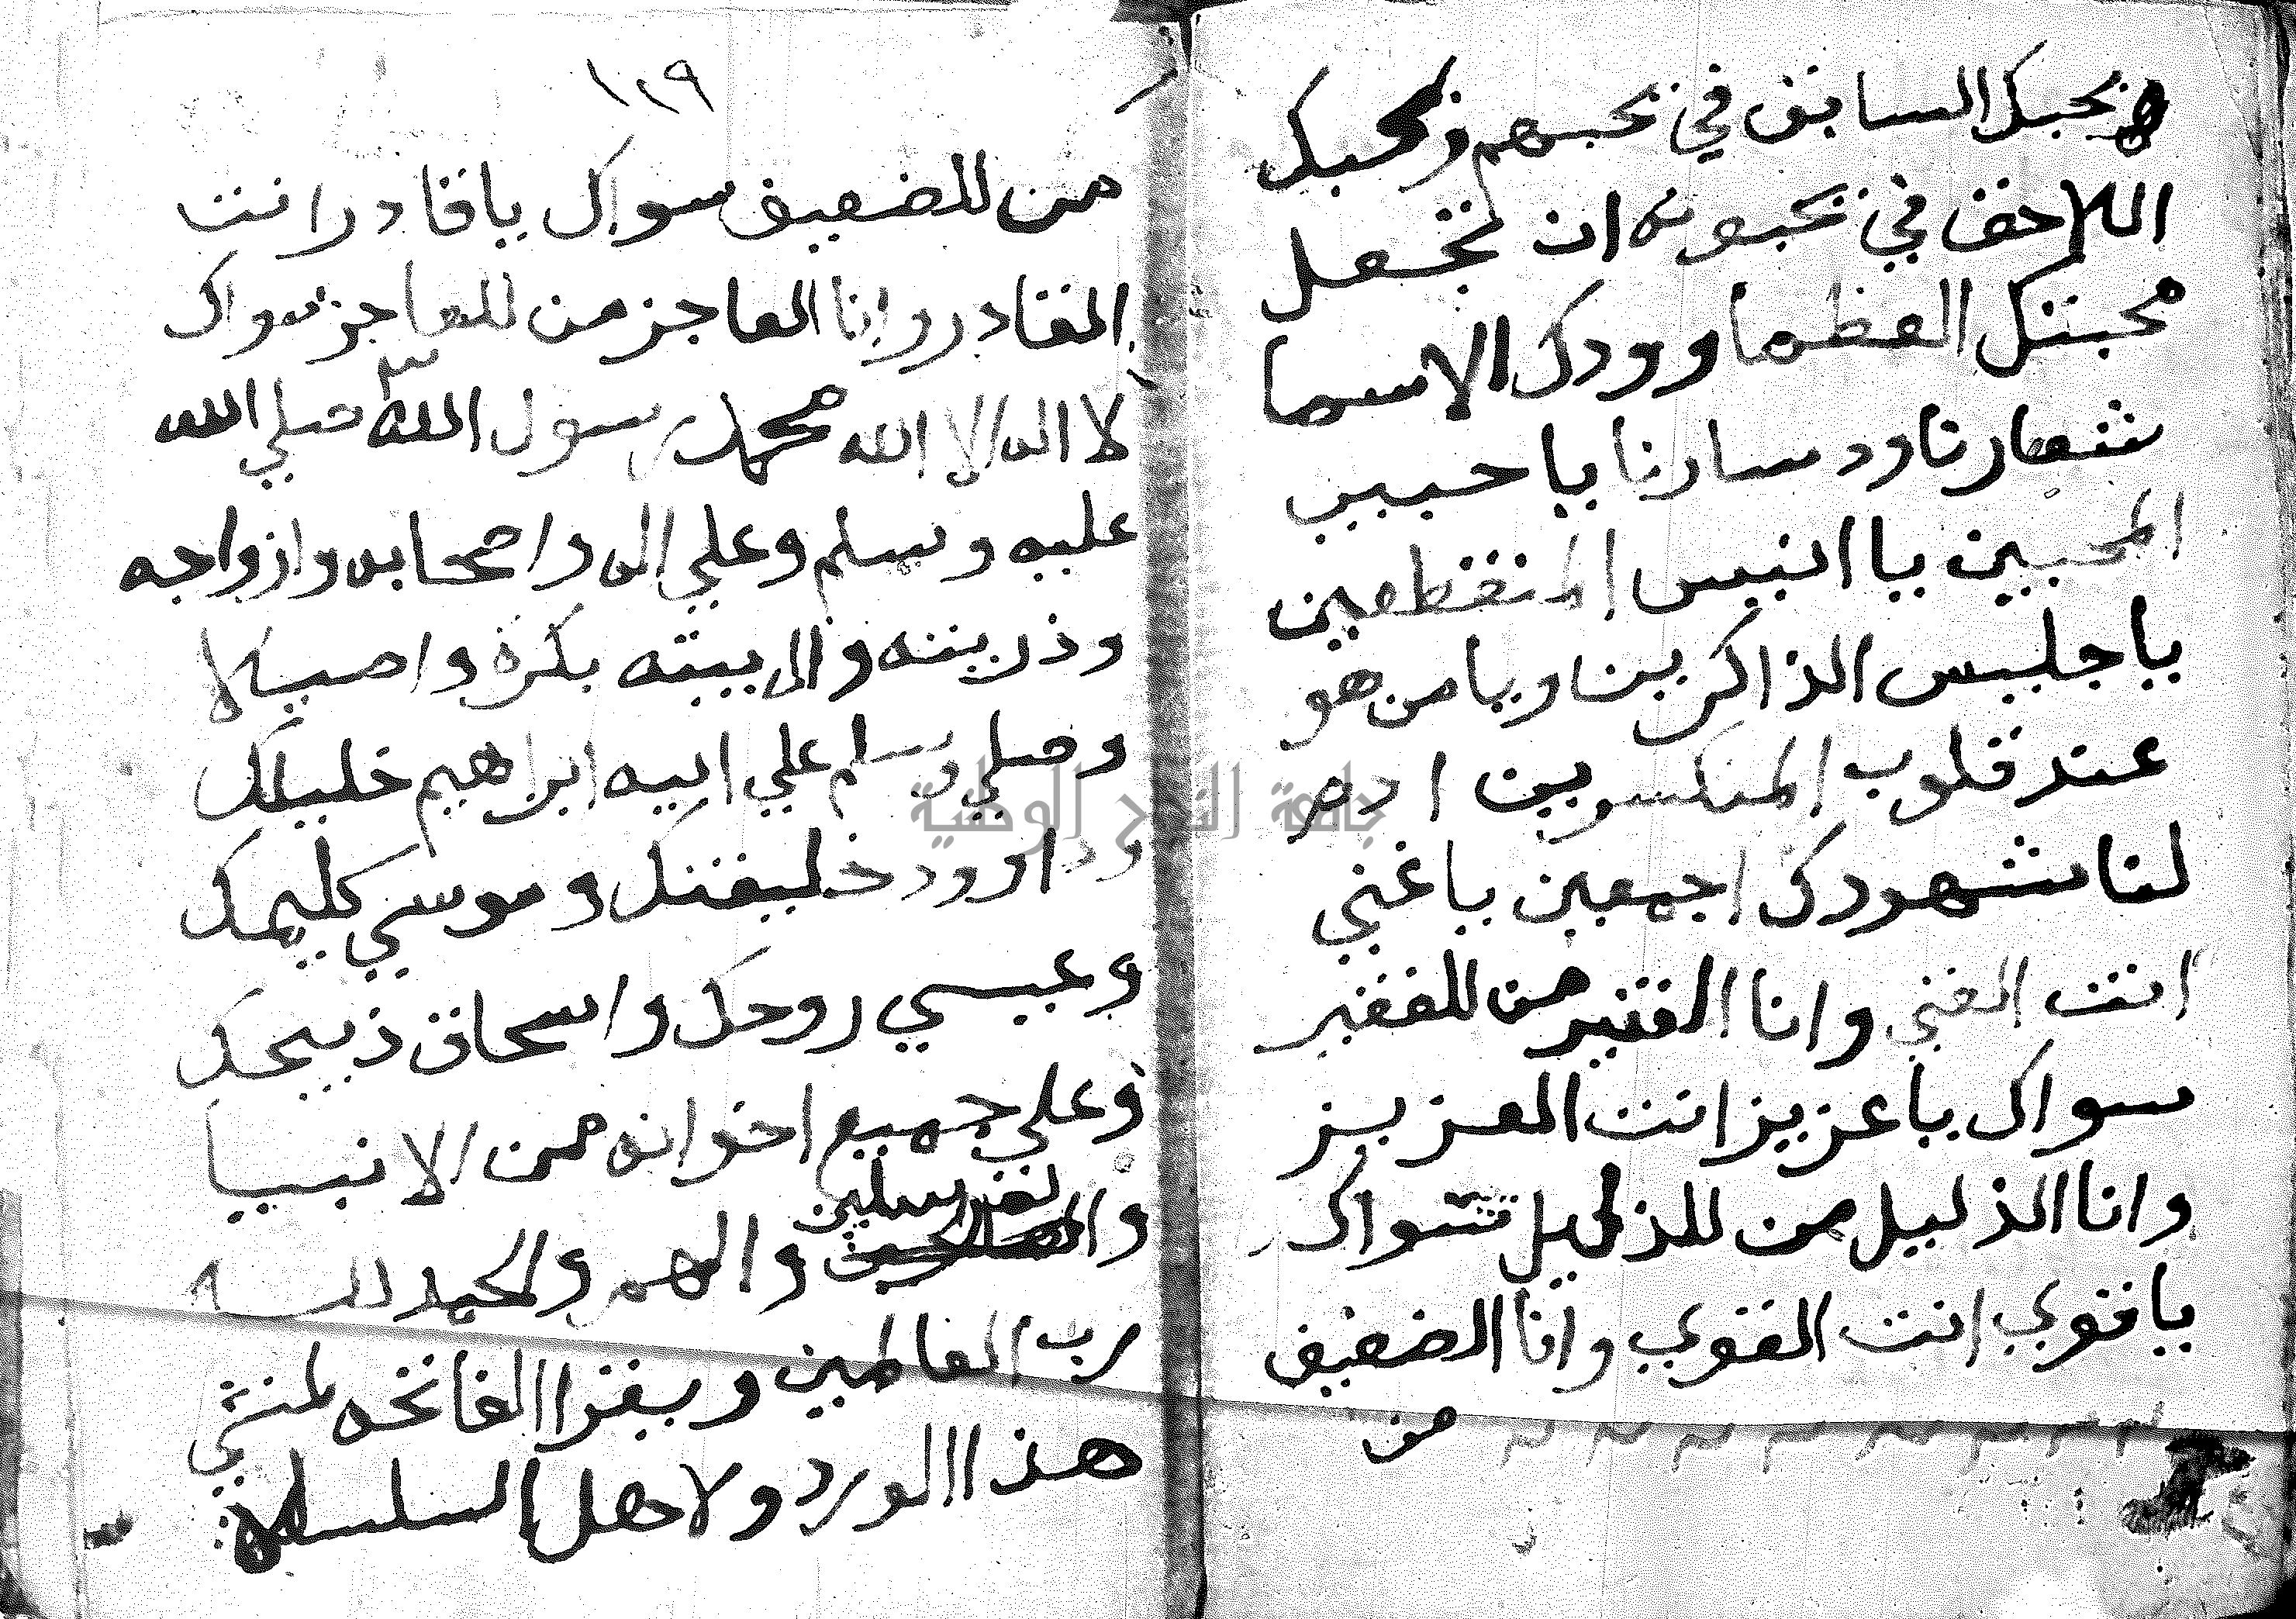 بحبك السابق في يحبهم وبحبك
اللاحق في يحبونه ان تجعل
محبتك العظما وودك الاسما
شعارنا ودسارنا يا حبيب
المحبين يا انيس المنقطعين
يا جليس الذاكرين ويا من هو
عند قلوب المنكسرين ادم
لنا شهودك اجمعين يا غني
انت الغني وانا الفقير من للفقير
سواك يا عزيز انت العزيز
وانا الذليل من للذليل سواك
يا قوي انت القوي وانا الضعيف
من
١٢٩
من للضعيف سواك يا قادر انت
القادر وانا العاجز من للعاجز سواك
لا اله الا الله محمد رسول الله صلي الله
عليه وسلم وعلي اله واصحابه وازواجه
وذريته وال بيته بكرة واصيلا
وصلي وسلم علي ابيه ابراهيم خليلك
وداوود خليفتك وموسي كليمك
وعيسي روحك واسحاق ذبيحك
وعلي جميع اخوانه من الانبيا
والمرسلين والهم والحمد لله
رب العالمين ويقرا الفاتحه لمنشي
هذا الورد ولاهل السلسلة
جامعة النجاح الوطنية